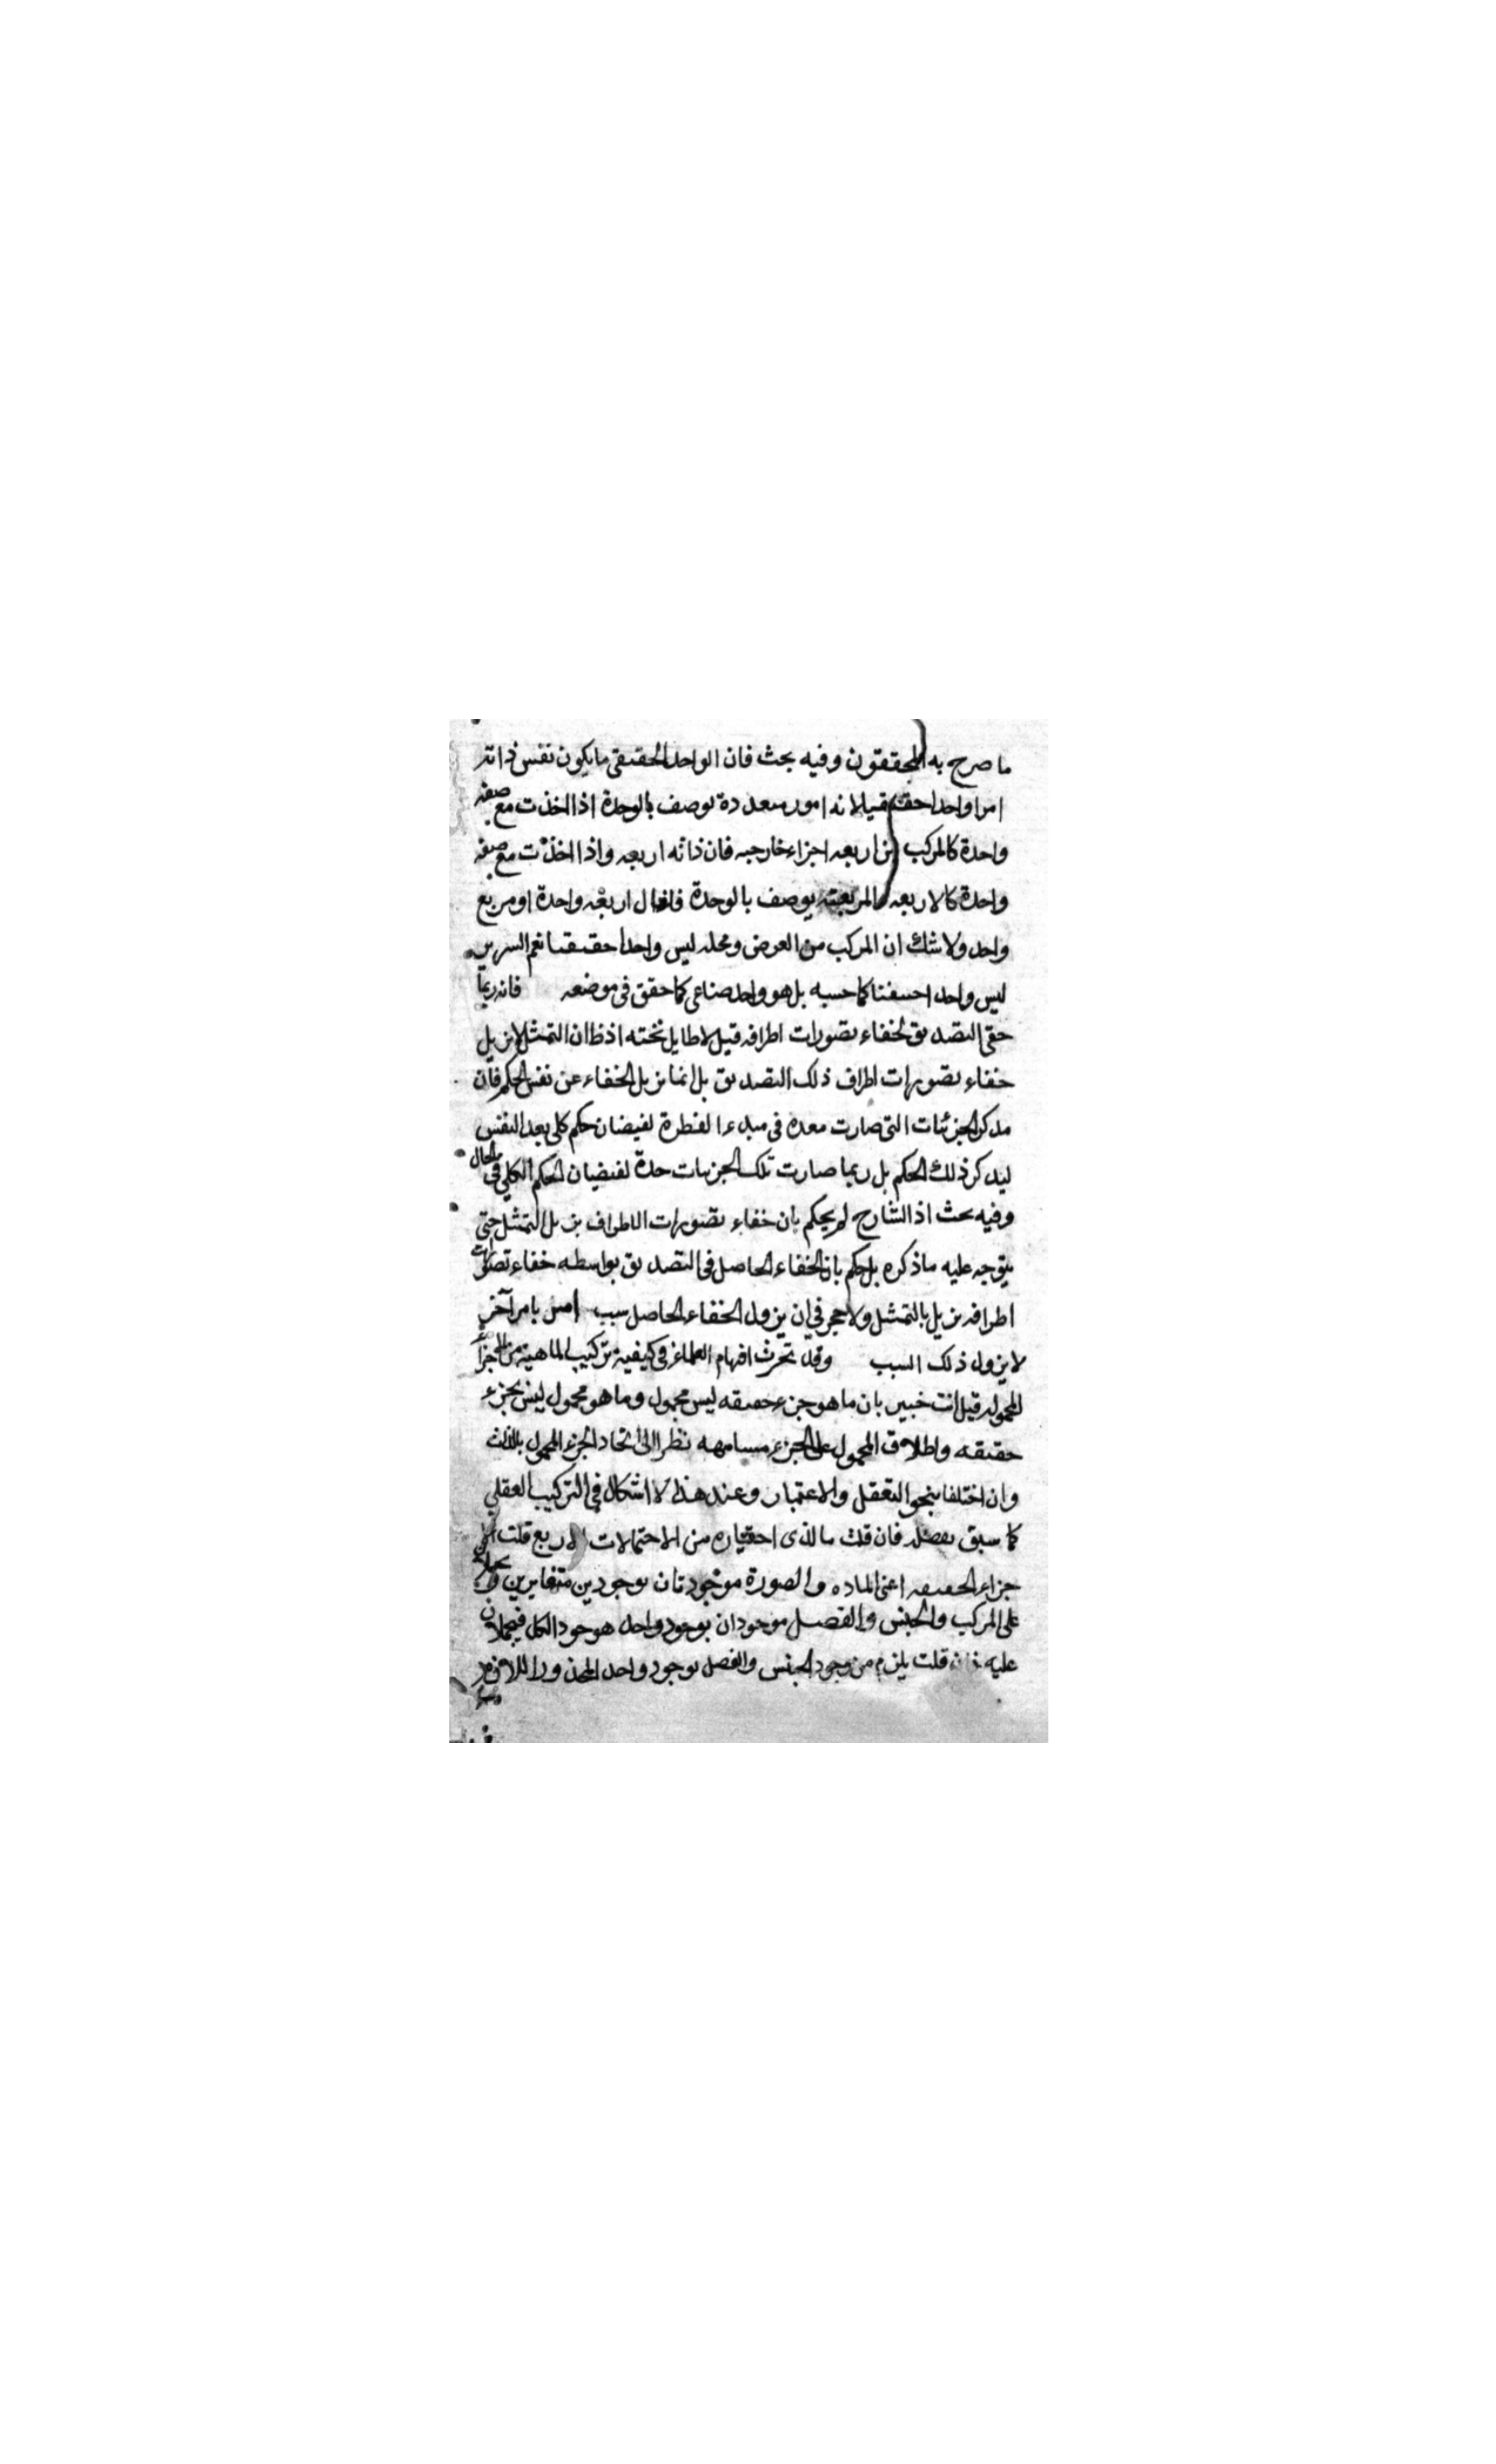 ما صرح به المحققون وفيه بحث فان الواحد الحقيقي ما يكون نفس ذاته
امرا واحدا حقيقيا لانه امور متعددة توصف بالوحدة اذا اخذت مع صفة
واحدة كالمركب من اربعه اجزاء خارجيه فان ذاته اربعه واذا اخذت مع صفة
واحدة كالاربعه والمربعية يوصف بالوحدة فيقال اربعه واحدة او مربع
واحد ولا شك ان المركب من العرض ومحله ليس واحدا حقيقيا نعم السرير
ليس واحدا حقيقيا كما حسبه بل هو واحد صناعي كما حقق في موضعه فانه ربما
خفي التصديق لخفاء تصورات اطرافه قيل لا طايل تحته اذ ظ ان التمثل لا يزيل
خفاء تصورات اطراف ذلك التصديق بل انما يزيل الخفاء عن نفس الحكم فان
مدرك الجزئيات التي صارت معدة في مبدء الفطرة لفيضان حكم كلي يعد النفس
ليدرك ذلك الحكم بل ربما صارت تلك الجزييات لفيضان الحكم الكلي في الحال
وفيه بحث اذ الشارح لم يحكم بان خفاء تصورات الاطراف يزيل التمثل حتى
يتوجه عليه ما ذكره بل حكم بان الخفاء الحاصل في التصديق بواسطه خفاء تصورات
اطرافه يزيل بالتمثل ولا حجر في ان يزول الخفاء الحاصل بسبب امر بامر آخر
لا يزول ذلك السبب وقد تحيرت افهام العلماء في كيفية تركيب الماهية من الاجزاء
المحموله قيل انت خبير بان ما هو جزء حقيقه ليس محمول وما هو محمول ليس بجزء
حقيقه واطلاق المحمول على الجزء مسامحه نظرا الى اتحاد الجزء المحمول بالذات
وان اختلفا بنحو التعقل والاعتبار وعند هذا لا اشكال في التركيب العقلي
كما سبق تفصيله فان قلت ما الذي اختياره من الاحتمالات الاربع قلت الا
جزاء الحقيقيه اعني الماده والصورة موجودتان بوجودين متغايرين
على المركب والجنس والفصل موجودان بوجود واحد هو وجود الكل فيحملان
عليه فان قلت يلزم من وجود الجنس والفصل بوجود واحد المحذور اللازم